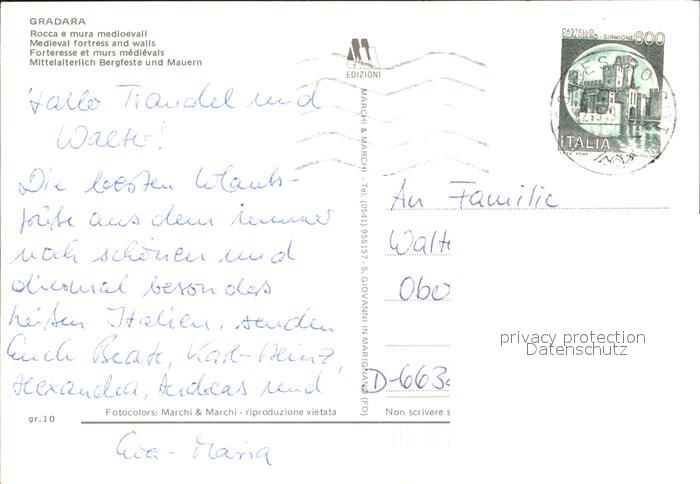 GRADARA
Rocca e mura medioevali
Medieval fortress and walls
Forteresse et murs médiévals
Mittelalterlich Bergfeste und Mauern
EDIZIONI
CASTELLO
SCALIGERO - SIRMIONE 800
PESARO
ITALIA
Hallo Traudel und
Walter!
Die besten Urlaubs-
grüße aus dem immer
noch schönen und
diesmal besonders
heißen Italien, senden
Euch Beate, Karl-Heinz,
Alexandra, Andreas und
Eva-Maria
MARCHI & MARCHI - Tel. (0541) 955157 - S. GIOVANNI IN MARIGNANO (FO)
An Familie
Walt
Obe
D-663
privacy protection
Datenschutz
gr.10
Fotocolors: Marchi & Marchi - riproduzione vietata
Non scrivere s